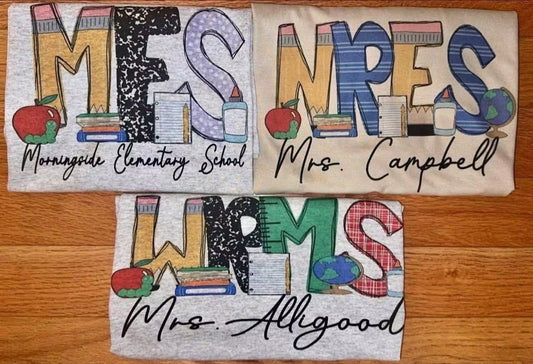 MES
Morningside Elementary School
NRES
Mrs. Campbell
WRMS
Mrs. Alligood